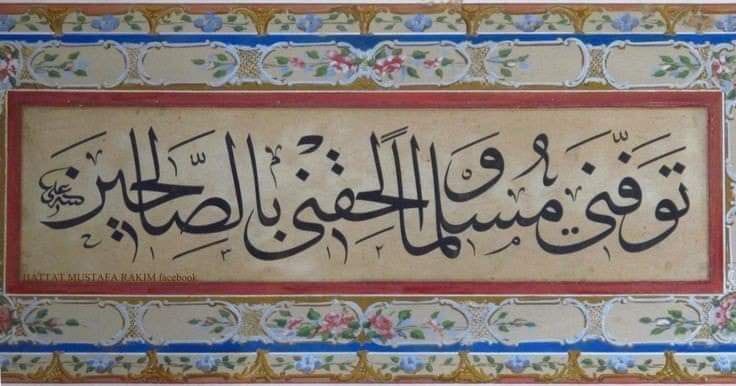 تَوَفَّنِى مُسْلِمًا وَالْحِقْنِى بِالصَّالِحِينَ
HATTAT MUSTAFA RAKIM facebook